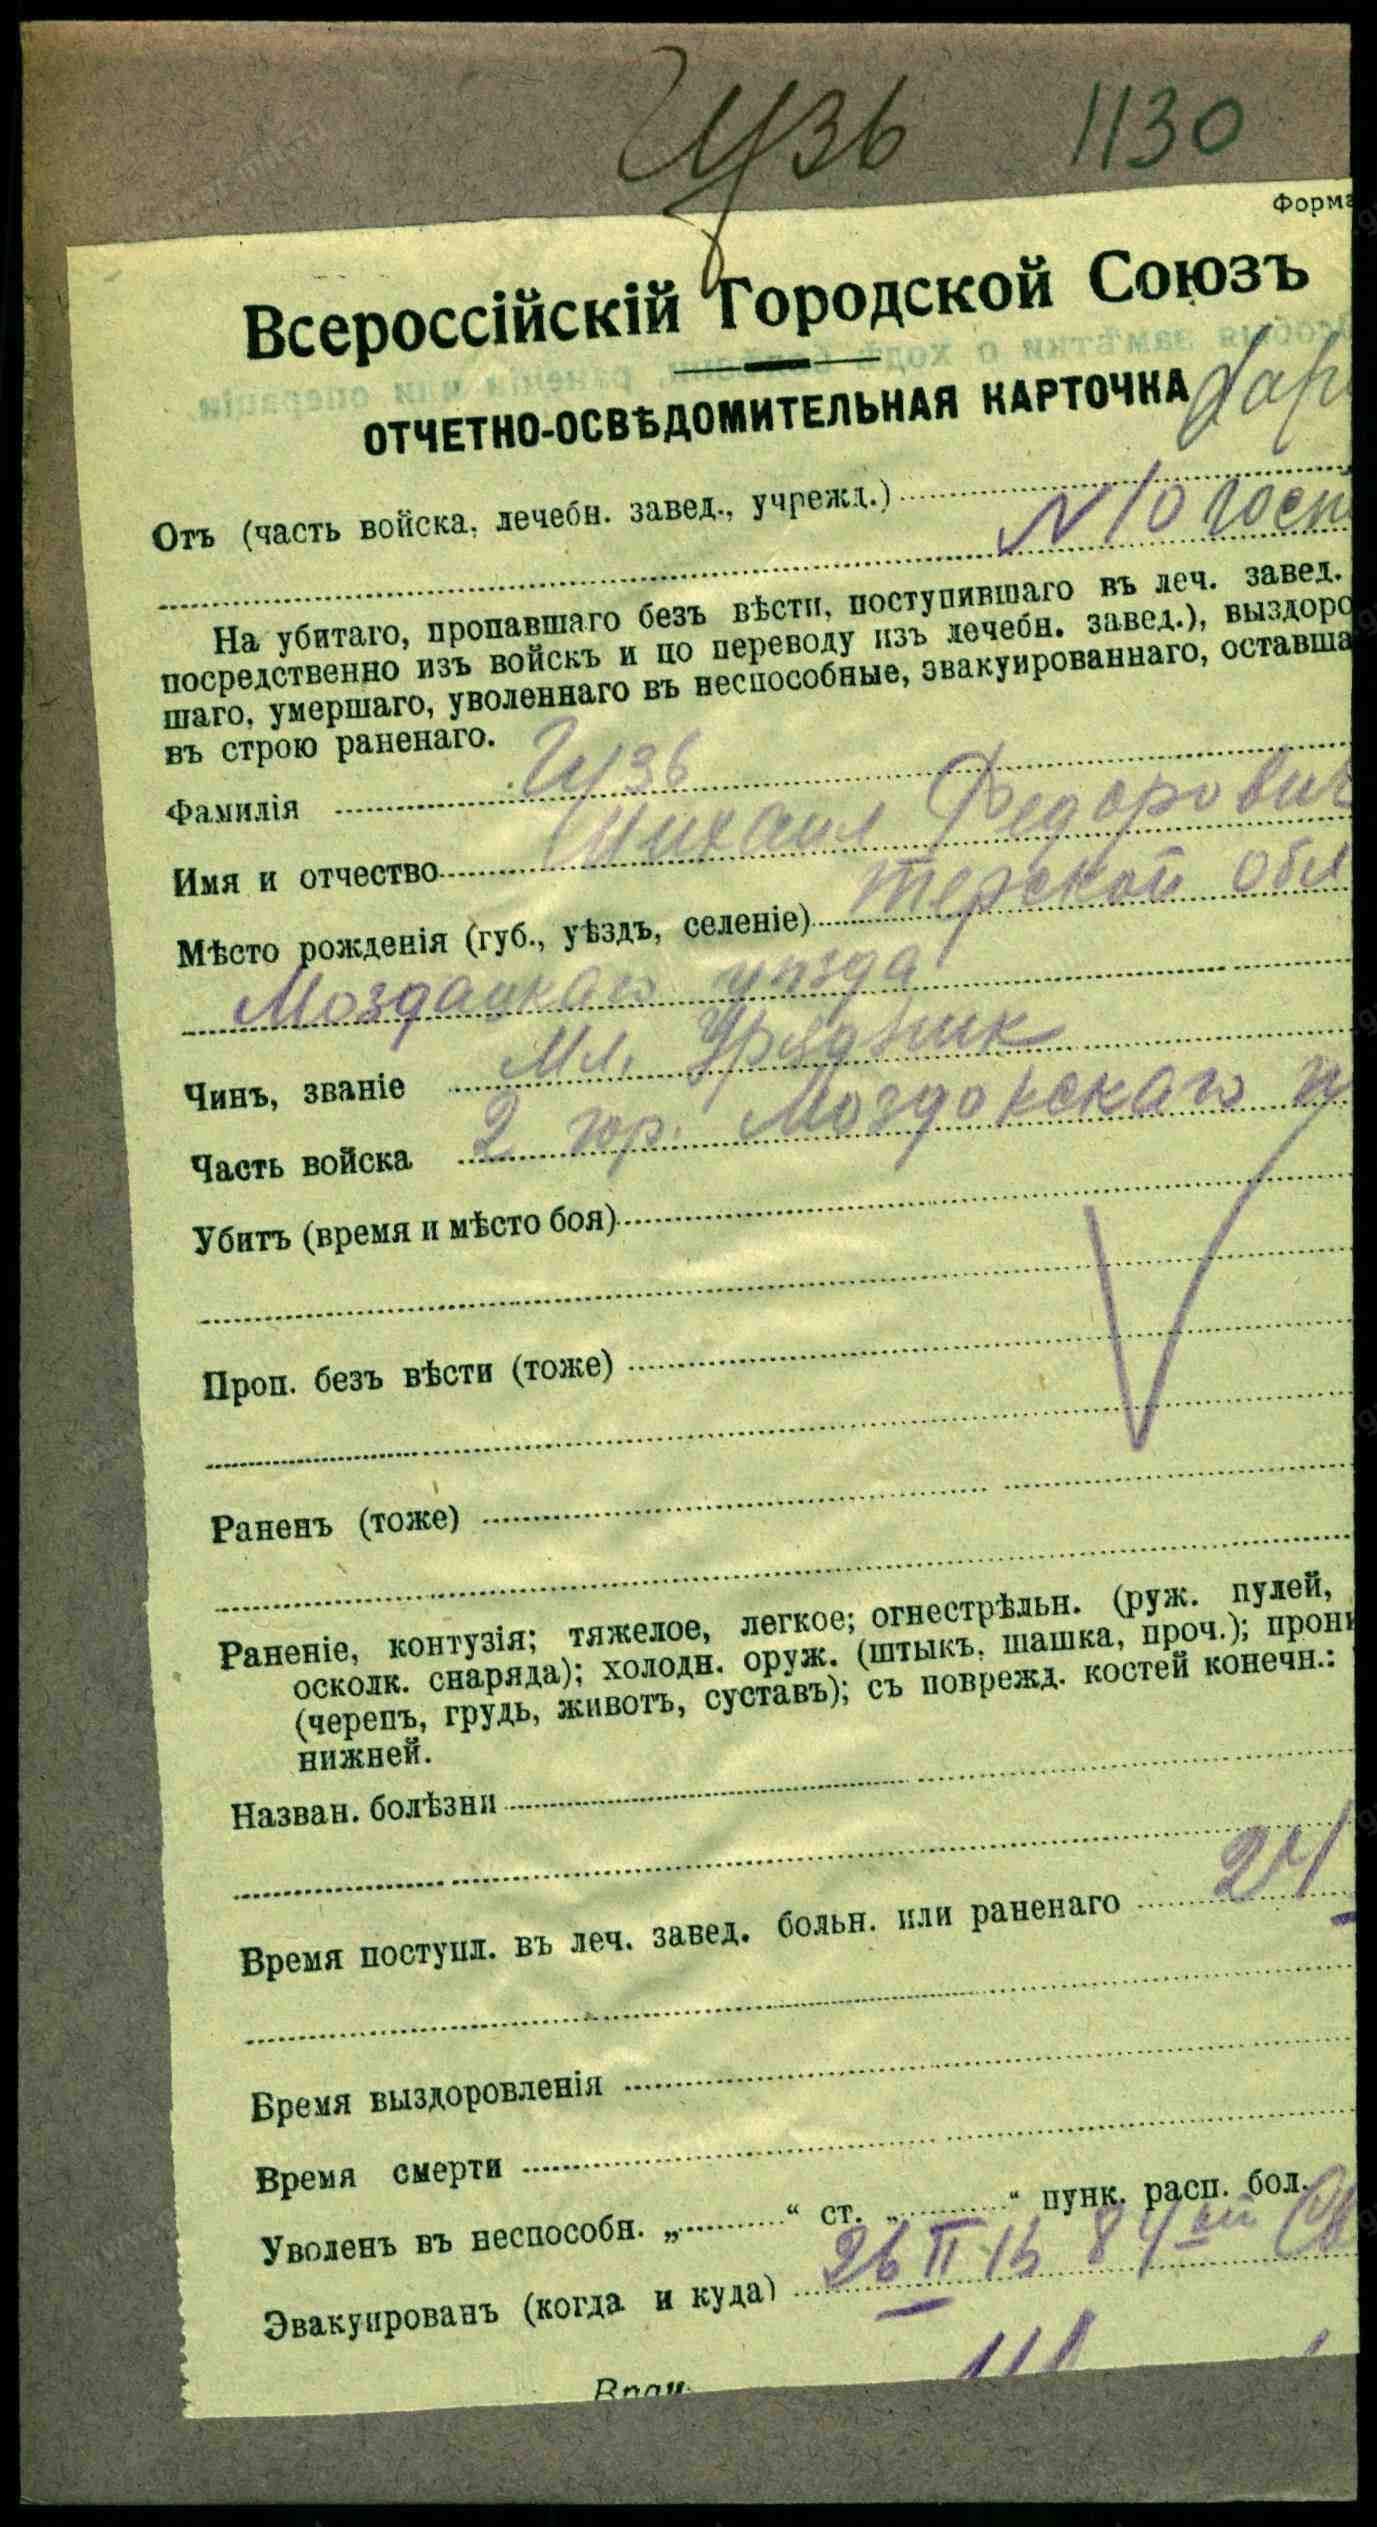 Гузь 1130
Форма
Всероссійскій Городской Союзъ
ОТЧЕТНО-ОСВѢДОМИТЕЛЬНАЯ КАРТОЧКА
Отъ (часть войска, лечебн. завед., учрежд.)
N 10 госп
На убитаго, пропавшаго безъ вѣсти, поступившаго въ леч. завед.
посредственно изъ войскъ и по переводу изъ лечебн. завед.), выздоро
шаго, умершаго, уволеннаго въ неспособные, эвакуированнаго, оставша
въ строю раненаго.
Фамилія Гузь
Имя и отчество Михаил Федорович
Мѣсто рожденія (губ., уѣздъ, селеніе) Терской обл
уѣзда
Чинъ, званіе Мл. Урядник
Часть войска 2 гор. Моздокскаго п
Убитъ (время и мѣсто боя)
Проп. безъ вѣсти (тоже)
Раненъ (тоже)
Раненіе, контузія; тяжелое, легкое; огнестрѣльн. (руж. пулей,
осколк. снаряда); холодн. оруж. (штыкъ, шашка, проч.); прони
(черепъ, грудь, животъ, суставъ); съ поврежд. костей конечн.:
нижней.
Назван. болѣзни
Время поступл. въ леч. завед. больн. или раненаго 24/
Время выздоровленія
Время смерти
Уволенъ въ неспособн. „ “ ст. „ “ пунк. расп. бол.
Эвакуированъ (когда и куда) 26 II 15 84ый
Врач